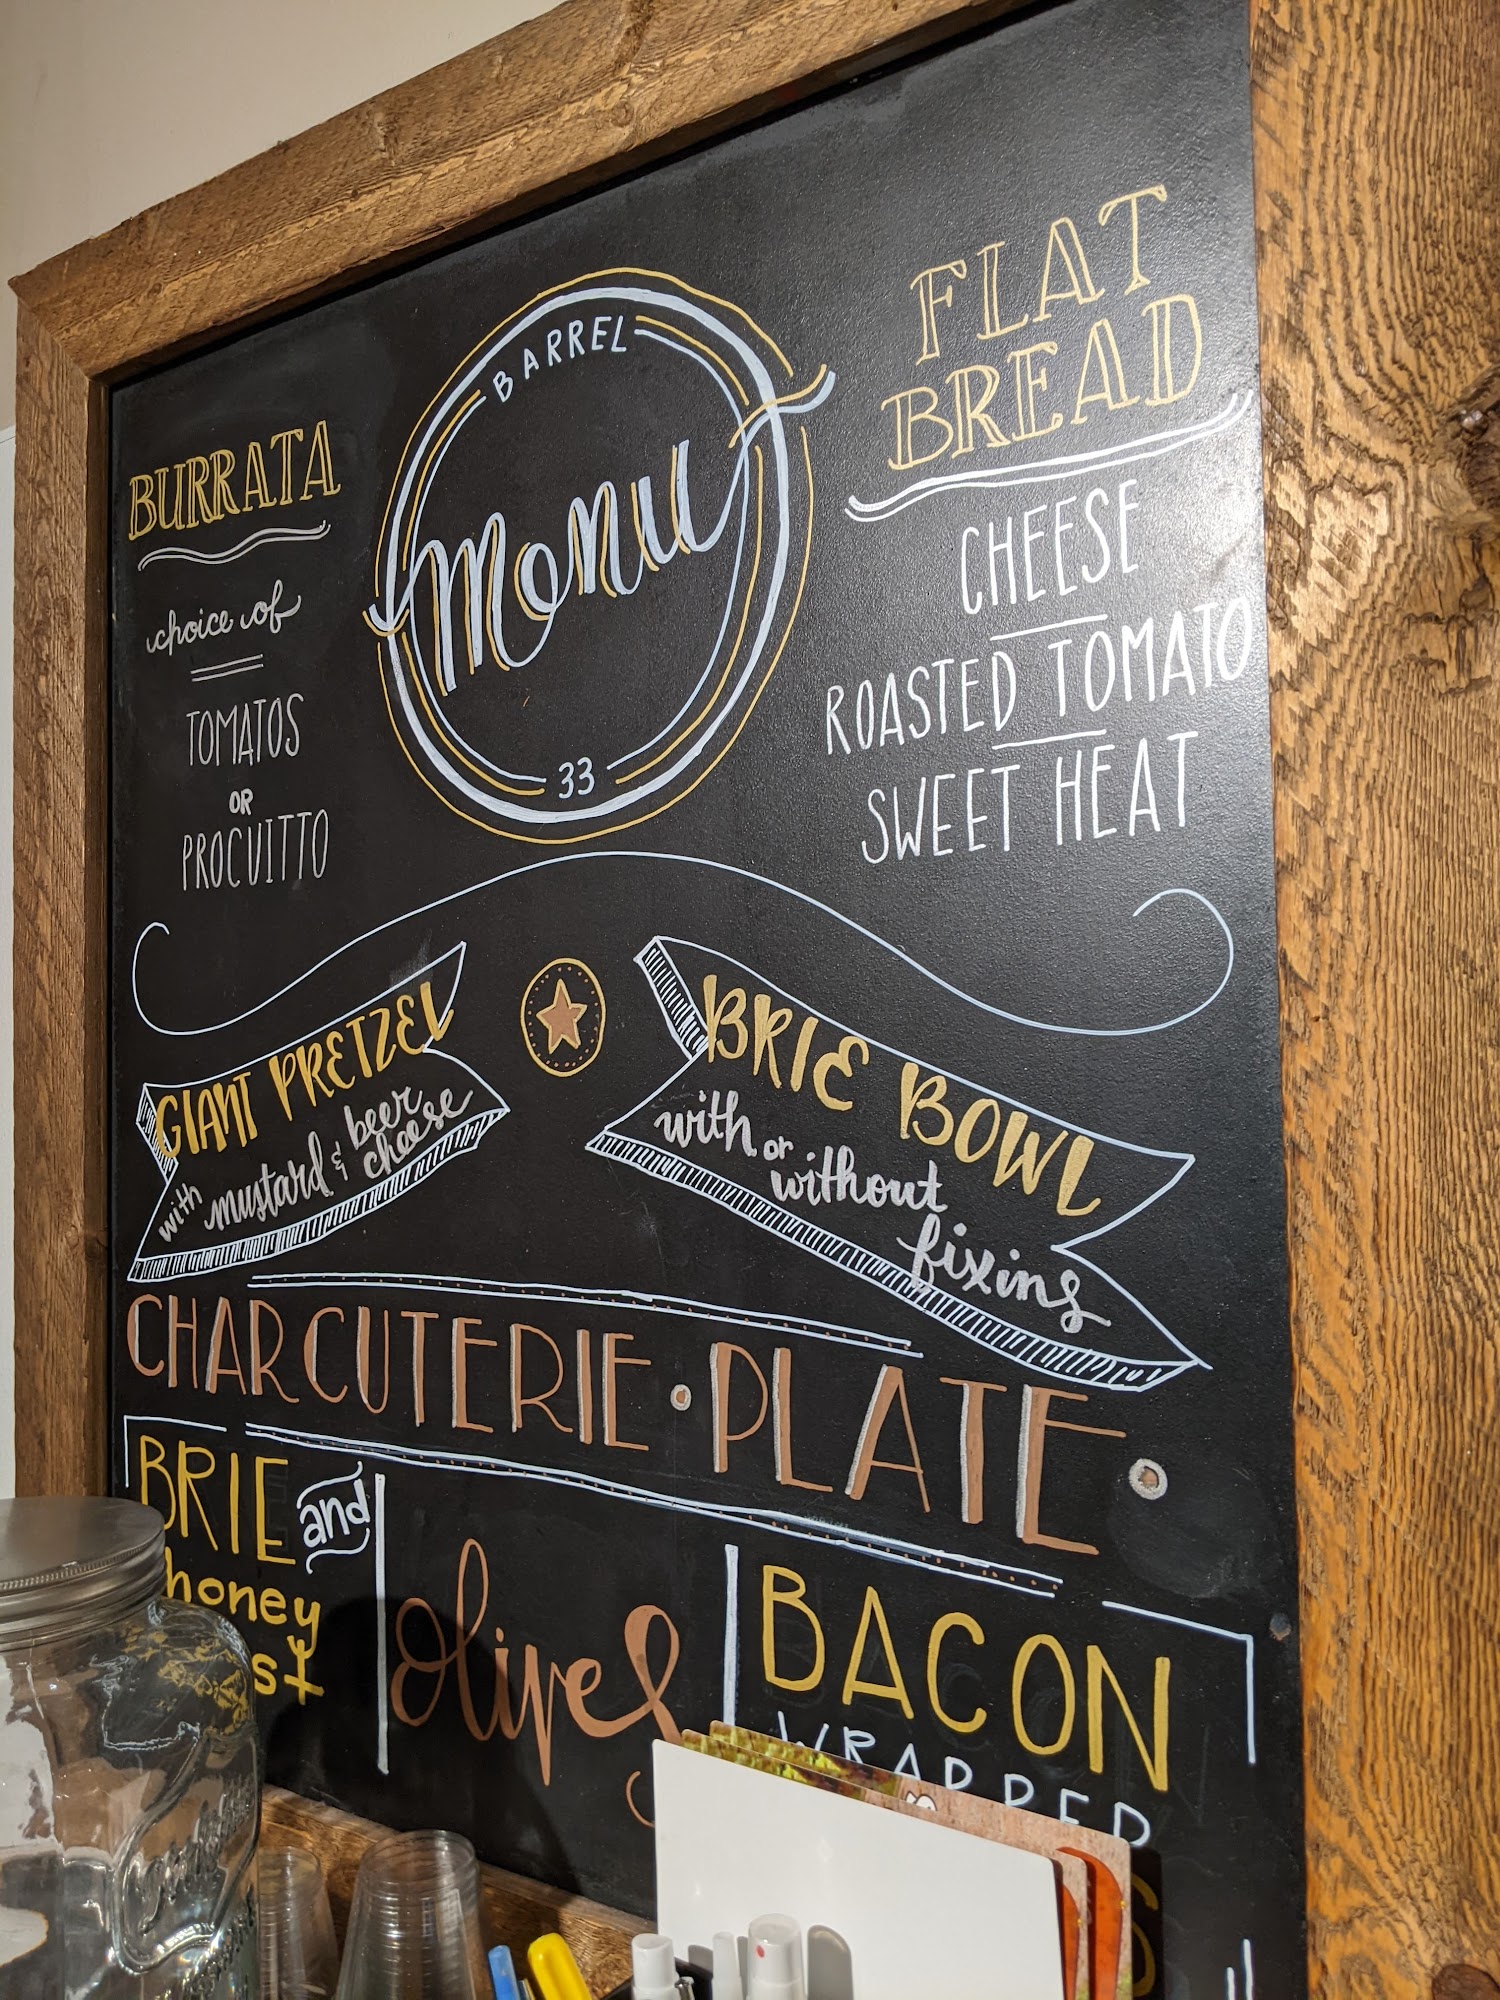 BARREL
Menu
33
BURRATA
choice of
TOMATOS
OR
PROCUITTO
FLAT
BREAD
CHEESE
ROASTED TOMATO
SWEET HEAT
GIANT PRETZEL
with mustard & beer
cheese
BRIE BOWL
with or
without
fixins
CHARCUTERIE • PLATE •
BRIE and
honey
olives
BACON
WRAPPED